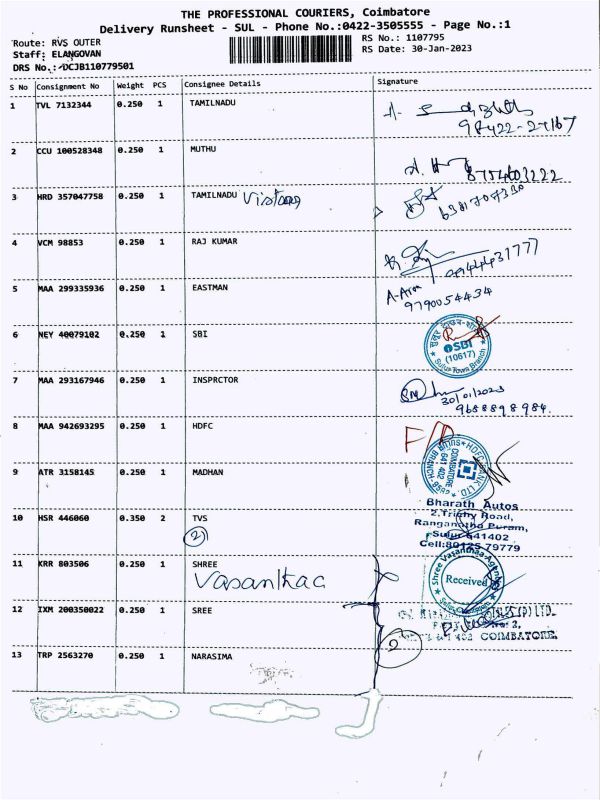 THE PROFESSIONAL COURIERS, Coimbatore
Delivery Runsheet - SUL - Phone No.:0422-3505555 - Page No.:1
Route: RVS OUTER
RS No.: 1107795
Staff: ELANGOVAN
RS Date: 30-Jan-2023
DRS No.:-DCJB110779501
S No Consignment No Weight PCS Consignee Details Signature
1 TVL 7132344 0.250 1 TAMILNADU
98422-27167
2 CCU 100528348 0.250 1 MUTHU
8754603222
3 HRD 357047758 0.250 1 TAMILNADU
4 VCM 98853 0.250 1 RAJ KUMAR
5 MAA 299335936 0.250 1 EASTMAN
9790054434
6 NEY 40079102 0.250 1 SBI
SBI
(10617)
Sulur Town Branch
7 MAA 293167946 0.250 1 INSPRCTOR
30/01/2023
9688898984.
8 MAA 942693295 0.250 1 HDFC
HDFC BANK LTD.
COIMBATORE
641 402
SULUR BRANCH
9 ATR 3158145 0.250 1 MADHAN
Bharath Autos
2,Trichy Road,
Ranganatha Puram,
Sulur 641402
10 HSR 446060 0.350 2 TVS
2
Cell:80125 79779
11 KRR 803506 0.250 1 SHREE
Vasanthaa
Shree Vasanthaa Agency
Received
12 IXM 200350022 0.250 1 SREE
(P) LTD.
402 COIMBATORE.
2
13 TRP 2563270 0.250 1 NARASIMA